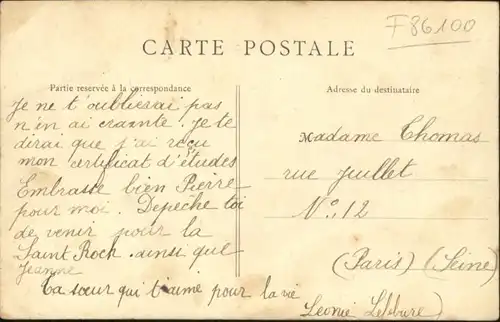 F86100
CARTE POSTALE
Partie reservée à la correspondance
Adresse du destinataire
Je ne t'oublierai pas
n'en ai crainte. Je te
dirai que j'ai reçu
mon certificat d'études
Embrasse bien Pierre
pour moi. Depêche toi
de venir pour la
Saint Roch. ainsi que
Jeanne
Ta sœur qui t'aime pour la vie
Leonie Lefebvre)
Madame Thomas
rue Juillet
N°: 12
(Paris) (Seine)